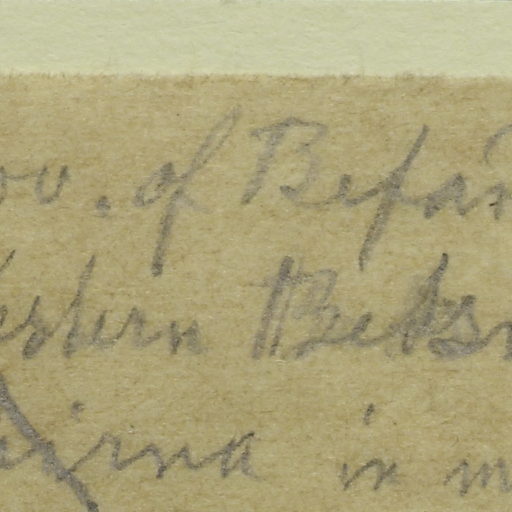 ov. of Befan
estern Betsi
irna in m